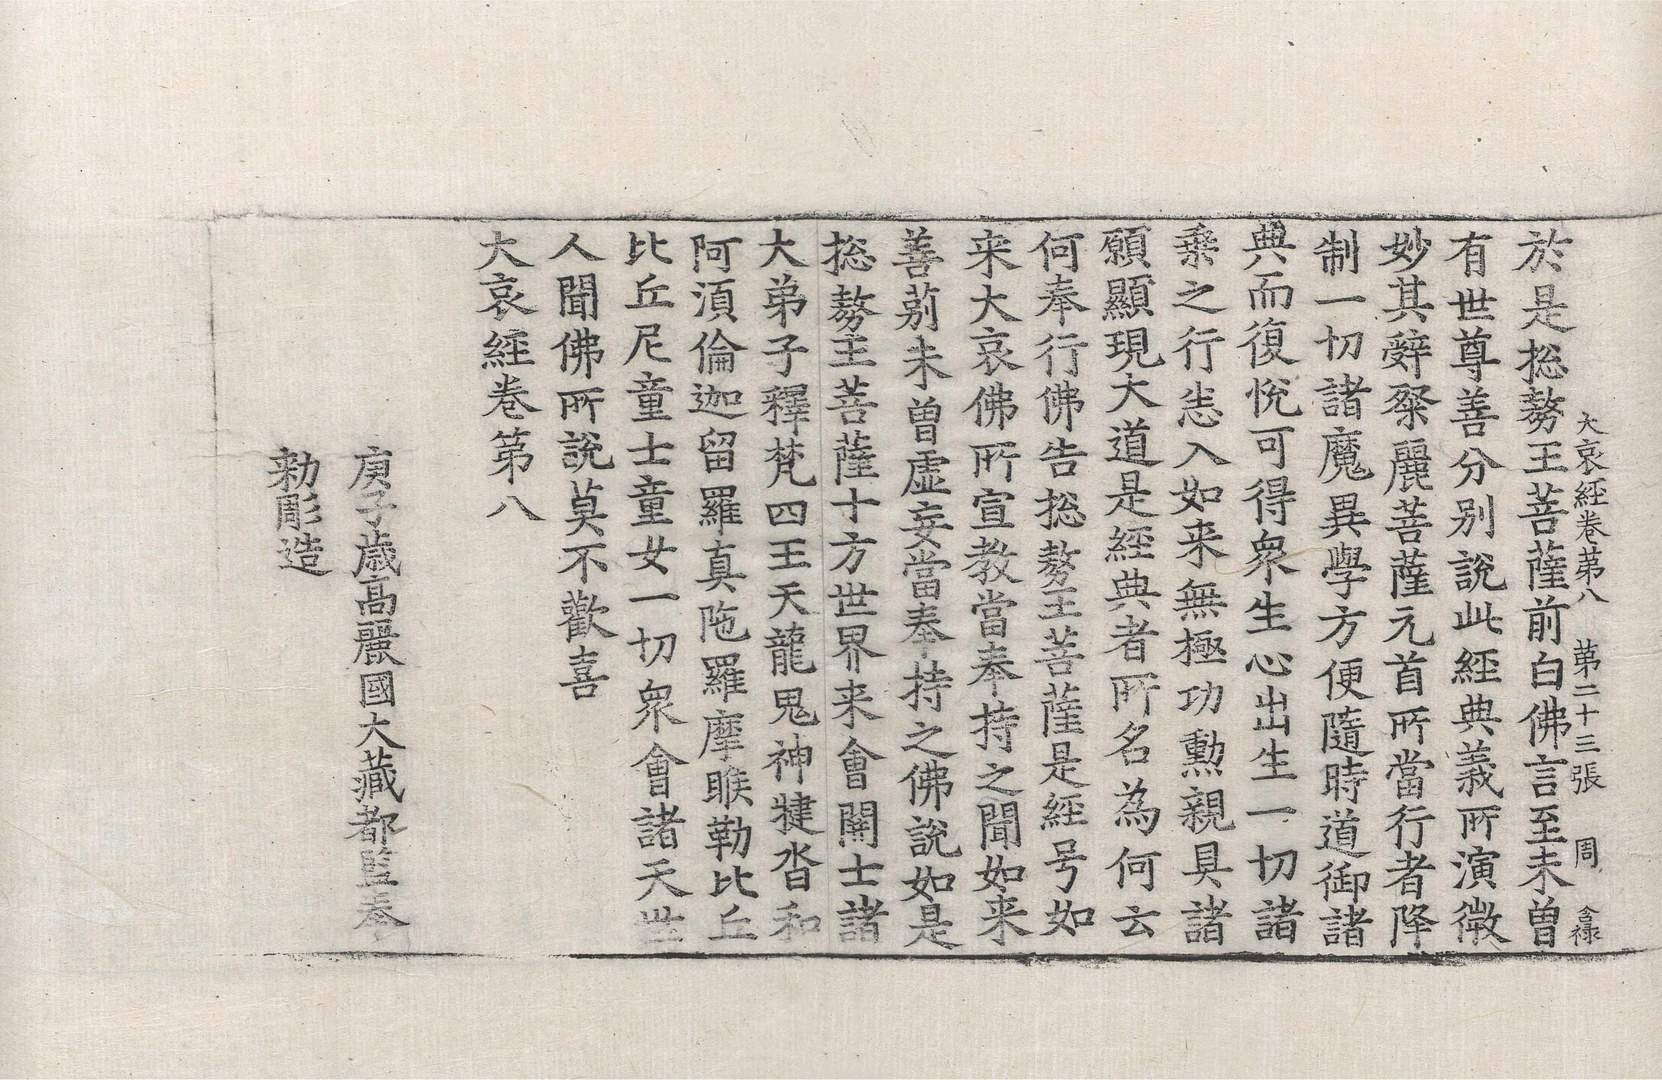 大哀經卷第八 第二十三張 周 含祿
於是捴㔟王菩薩前白佛言至未曾
有世尊善分別說此經典義所演微
妙其辝粲麗菩薩元首所當行者降
制一切諸魔異學方便隨時道御諸
典而復悅可得衆生心出生一切諸
乘之行恙入如来無極功勲親具諸
願顯現大道是經典者所名為何云
何奉行佛告捴㔟王菩薩是經号如
来大哀佛所宣教當奉持之聞如来
善莂未曾虛妄當奉持之佛說如是
捴㔟王菩薩十方世界来會闓士諸
大弟子釋梵四王天龍鬼神揵沓和
阿湏倫迦留羅真陁羅摩睺勒比丘
比丘尼童士童女一切衆會諸天世
人聞佛所說莫不歡喜
大哀經卷第八
庚子歲高麗國大藏都監奉
勑彫造